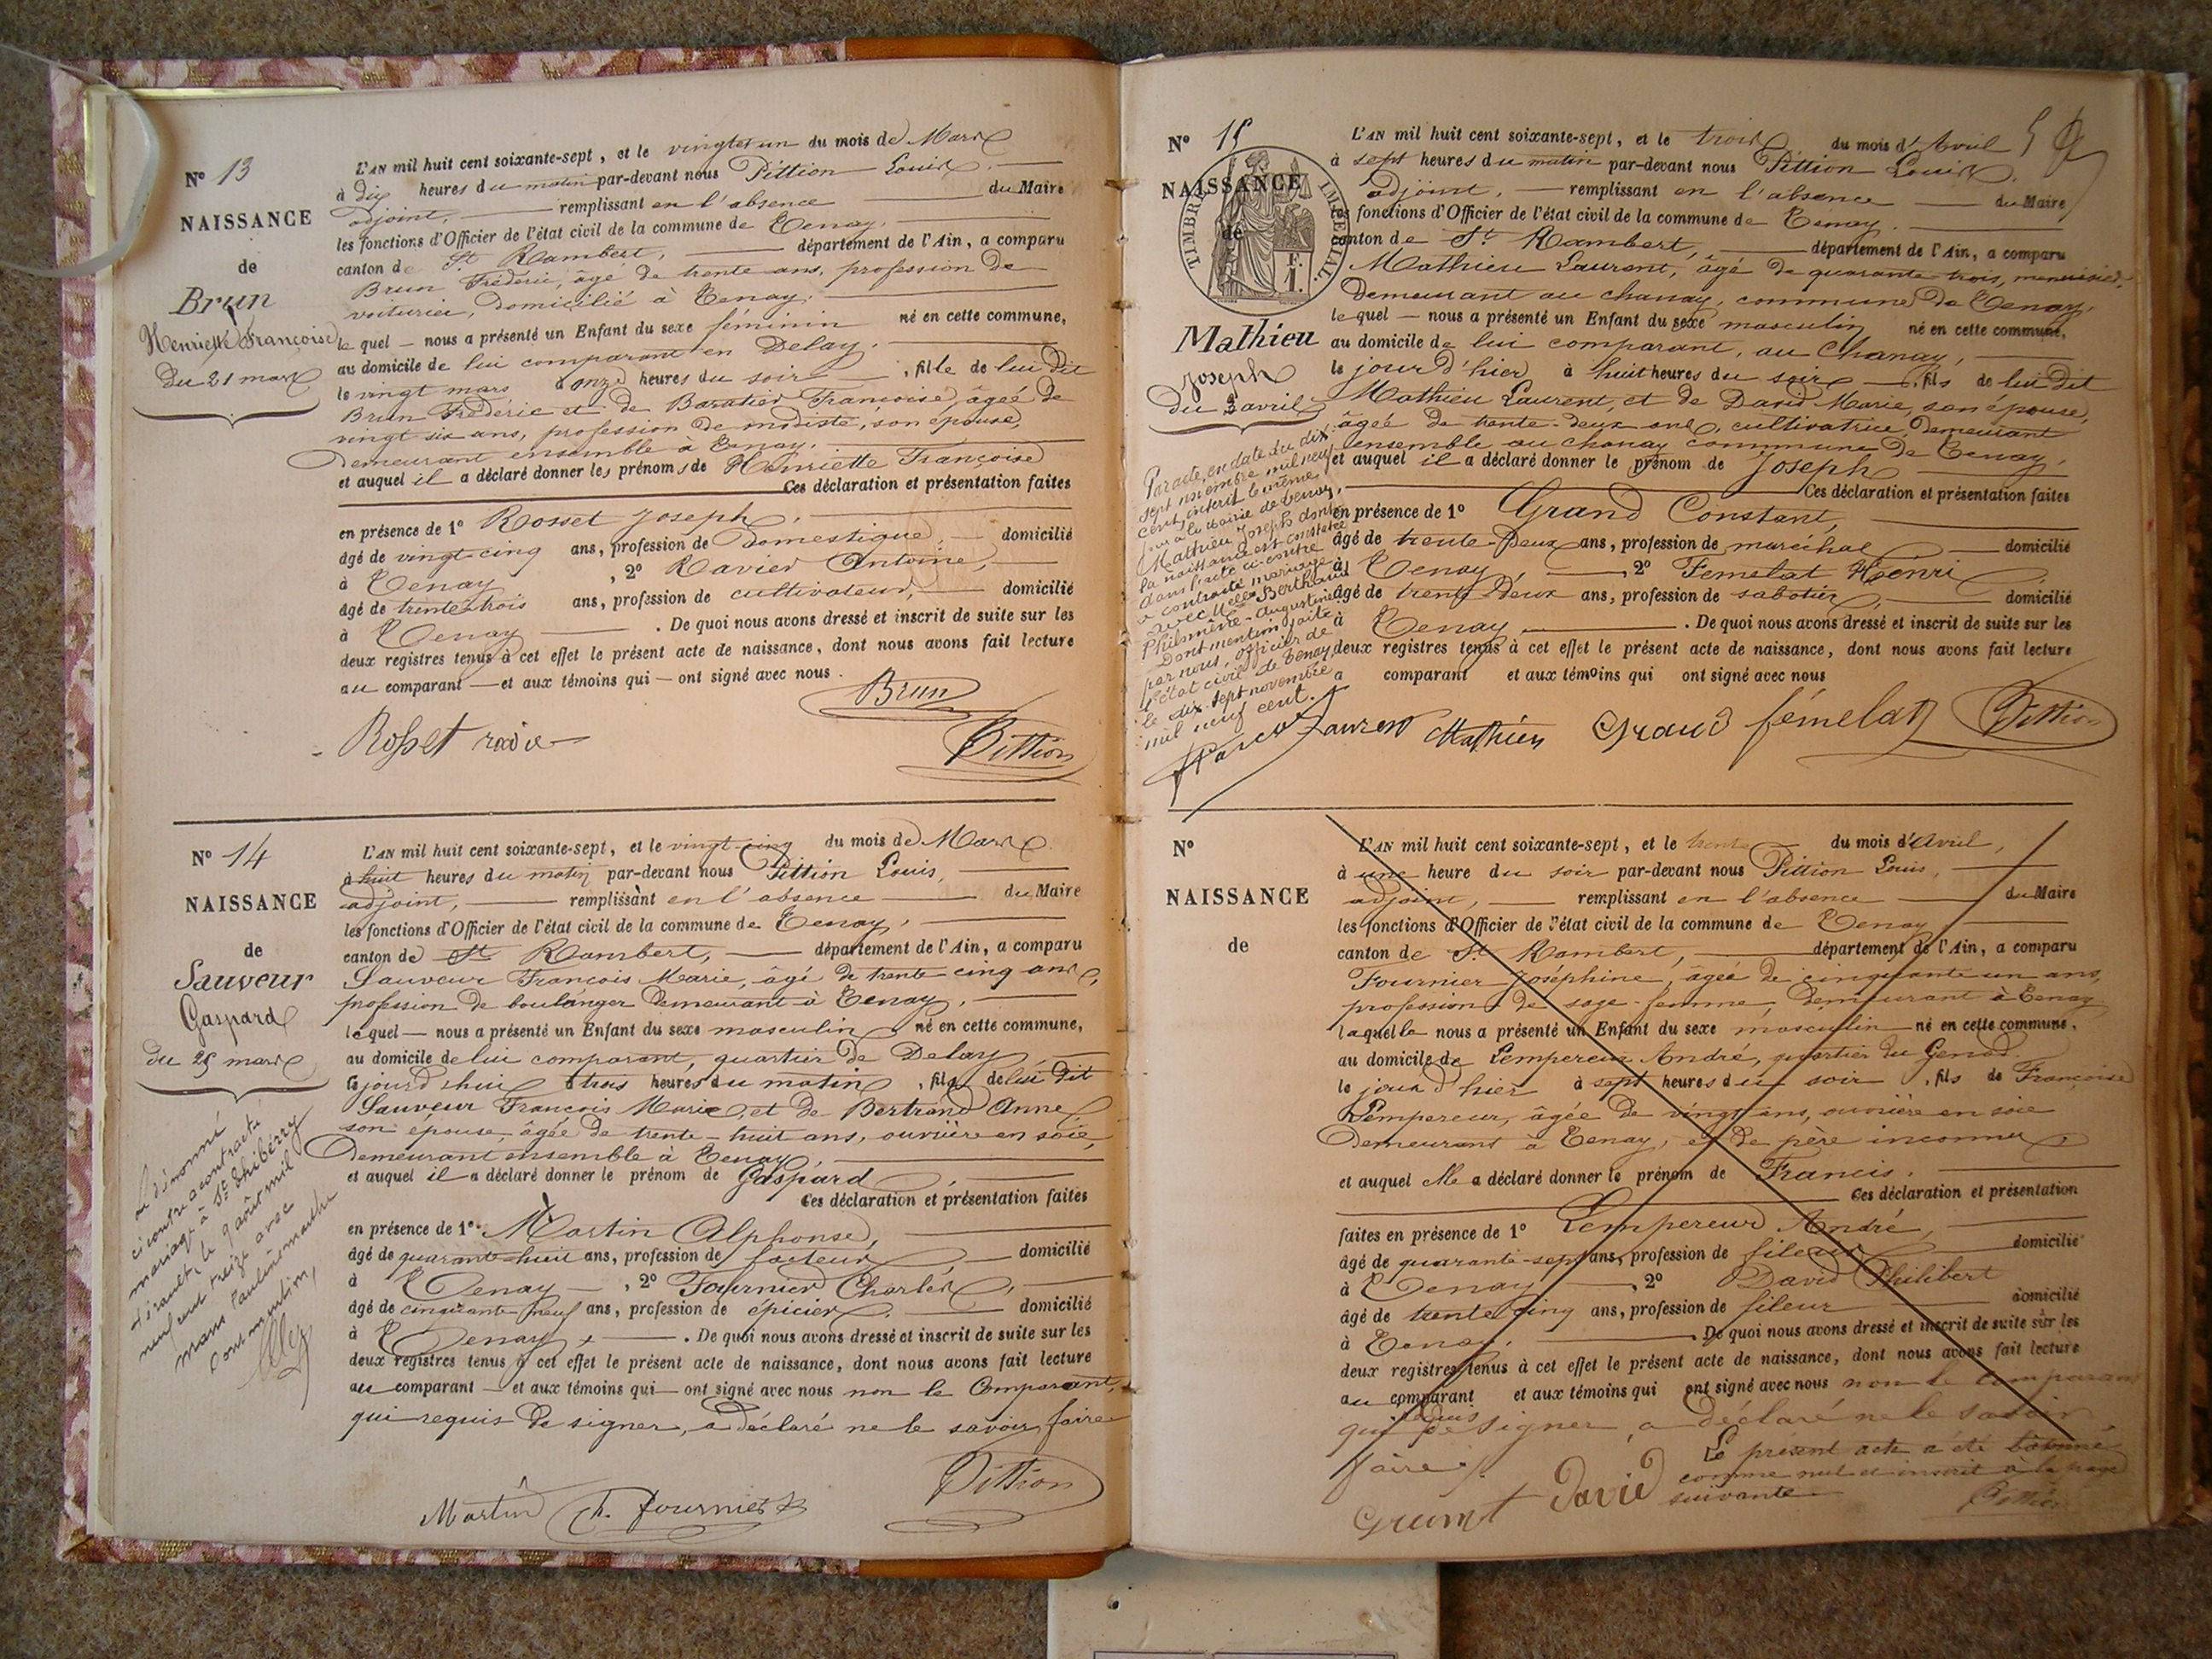 N° 13
NAISSANCE
de
Brun
Henriette Françoise
Du 21 mars
L'AN mil huit cent soixante-sept, et le vingt et un du mois de Mars
à dix heures du matin par-devant nous Pittion Louis
adjoint, remplissant en l'absence du Maire
les fonctions d'Officier de l'état civil de la commune de Tenay,
canton de St Rambert, département de l'Ain, a comparu
Brun Fréderic, âgé de trente ans, profession de
voiturier, domicilié à Tenay.
le quel nous a présenté un Enfant du sexe féminin né en cette commune,
au domicile de lui comparant en Delay.
le vingt mars à onze heures du soir, fille de lui dit
Brun Fréderic et de Baratier Françoise, âgée de
vingt six ans, profession de modiste, son épouse,
Demeurant ensemble à Tenay.
et auquel il a déclaré donner les prénoms de Henriette Françoise
Ces déclaration et présentation faites
en présence de 1° Rosset Joseph,
âgé de vingt-cinq ans, profession de domestique, domicilié
à Tenay, 2° Ravier Antoine,
âgé de trente trois ans, profession de cultivateur, domicilié
à Tenay. De quoi nous avons dressé et inscrit de suite sur les
deux registres tenus à cet effet le présent acte de naissance, dont nous avons fait lecture
au comparant et aux témoins qui ont signé avec nous.
Brun
Rosset
Pittion
N° 14
NAISSANCE
de
Sauveur
Gaspard
du 25 mars
le dénommé
ci contre a contracté
mariage à St Thibéry
Hérault, le 9 août mil
neuf cent treize avec
Mans Pauline
Dont mention,
L'AN mil huit cent soixante-sept, et le vingt-cinq du mois de Mars
à huit heures du matin par-devant nous Pittion Louis,
adjoint, remplissant en l'absence du Maire
les fonctions d'Officier de l'état civil de la commune de Tenay,
canton de St Rambert, département de l'Ain, a comparu
Sauveur François Marie, âgé de trente cinq ans,
profession de boulanger demeurant à Tenay,
lequel nous a présenté un Enfant du sexe masculin né en cette commune,
au domicile de lui comparant, quartier de Delay
cejourd'hui à trois heures du matin, fils de lui dit
Sauveur François Marie, et de Bertrand Anne
son épouse, âgée de trente-huit ans, ouvrière en soie,
Demeurant ensemble à Tenay,
et auquel il a déclaré donner le prénom de Gaspard
Ces déclaration et présentation faites
en présence de 1° Martin Alphonse,
âgé de quarante huit ans, profession de facteur, domicilié
à Tenay, 2° Fournier Charles,
âgé de cinquante neuf ans, profession de épicier, domicilié
à Tenay. De quoi nous avons dressé et inscrit de suite sur les
deux registres tenus à cet effet le présent acte de naissance, dont nous avons fait lecture
au comparant et aux témoins qui ont signé avec nous non le Comparant,
qui requis de signer, a déclaré ne le savoir faire
Pittion
Martin Ch. Fournier
N° 15
NAISSANCE
de
TIMBRE IMPERIAL
F.
1.
Mathieu
Joseph
Du 3 avril
Par acte, en date du dix
sept novembre mil neuf
cent, inscrit le même
jour à la Mairie de Tenay,
Mathieu Joseph dont
la naissance est constatée
dans l'acte ci-contre
a contracté mariage
avec Melle Berthaud
Philomène-Augustine
Dont mention faite
par nous, officier de
l'état civil de Tenay
le dix-sept novembre
mil neuf cent.
L'AN mil huit cent soixante-sept, et le trois du mois d'Avril
à sept heures du matin par-devant nous Pittion Louis,
adjoint, remplissant en l'absence du Maire
les fonctions d'Officier de l'état civil de la commune de Tenay.
canton de St Rambert, département de l'Ain, a comparu
Mathieu Laurent, âgé de quarante trois, menuisier,
Demeurant au chanay, commune de Tenay,
le quel nous a présenté un Enfant du sexe masculin né en cette commune,
au domicile de lui comparant, au Chanay,
le jour d'hier à huit heures du soir, fils de lui dit
Mathieu Laurent, et de David Marie, son épouse,
âgée de trente-deux ans, cultivatrice, demeurant
ensemble au chanay commune de Tenay,
et auquel il a déclaré donner le prénom de Joseph
Ces déclaration et présentation faites
en présence de 1° Grand Constant,
âgé de trente-deux ans, profession de maréchal domicilié
à Tenay, 2° Femelat Henri
âgé de trente deux ans, profession de sabotier, domicilié
à Tenay. De quoi nous avons dressé et inscrit de suite sur les
deux registres tenus à cet effet le présent acte de naissance, dont nous avons fait lecture
a comparant et aux témoins qui ont signé avec nous
Laurent Mathieu Grand fémelat Pittion
N°
NAISSANCE
de
L'AN mil huit cent soixante-sept, et le trente du mois d'avril,
à une heure du soir par-devant nous Pittion Louis,
adjoint, remplissant en l'absence du Maire
les fonctions d'Officier de l'état civil de la commune de Tenay
canton de St Rambert, département de l'Ain, a comparu
Fournier Joséphine, âgée de cinquante un ans,
profession de sage-femme, demeurant à Tenay
laquelle nous a présenté un Enfant du sexe masculin né en cette commune,
au domicile de Lempereur André, quartier du Genod.
le jour d'hier à sept heures du soir, fils de Françoise
Lempereur, âgée de vingt ans, ouvrière en soie
Demeurant à Tenay, et de père inconnu
et auquel elle a déclaré donner le prénom de Francis.
Ces déclaration et présentation
faites en présence de 1° Lempereur André,
âgé de quarante-sept ans, profession de fileur domicilié
à Tenay 2° David Philibert
âgé de trente cinq ans, profession de fileur domicilié
à Tenay. De quoi nous avons dressé et inscrit de suite sur les
deux registres tenus à cet effet le présent acte de naissance, dont nous avons fait lecture
au comparant et aux témoins qui ont signé avec nous non le comparant
qui requis de signer, a déclaré ne le savoir
faire.
Le présent acte a été bâtonné
comme nul et inscrit à la page
suivante
David
Pittion